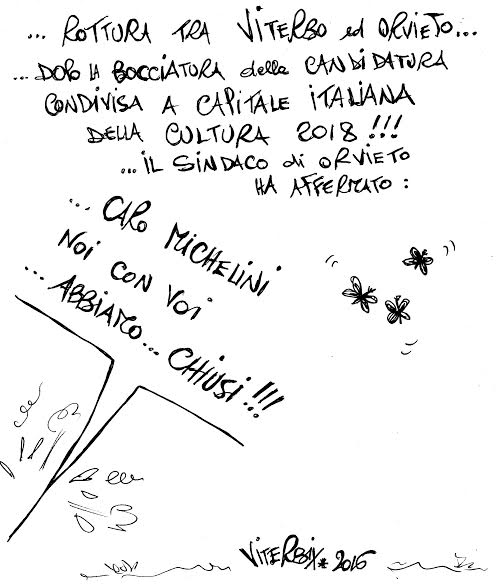 ... ROTTURA TRA VITERBO ed ORVIETO...
...DOPO LA BOCCIATURA della CANDIDATURA
CONDIVISA A CAPITALE ITALIANA
DELLA CULTURA 2018 !!!
...IL SINDACO di ORVIETO
HA AFFERMATO :
... CARO MICHELINI
NOI CON VOI
... ABBIAMO... CHIUSI !!!
VITERBIX 2016